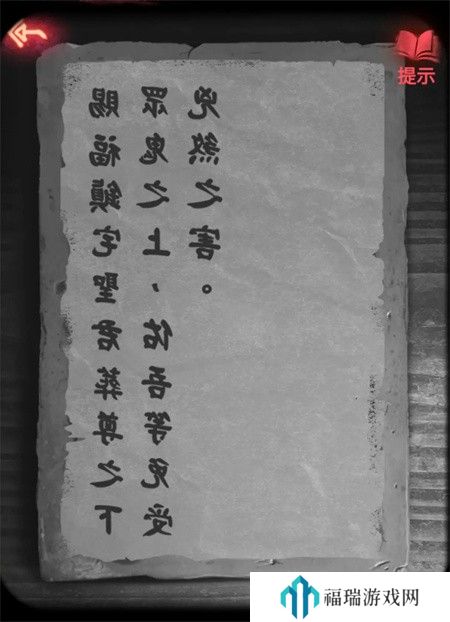 賜福鎮宅聖君葬尊之下
眾鬼之上，佑吾等免受
兇煞之害。
提示
福瑞游戏网